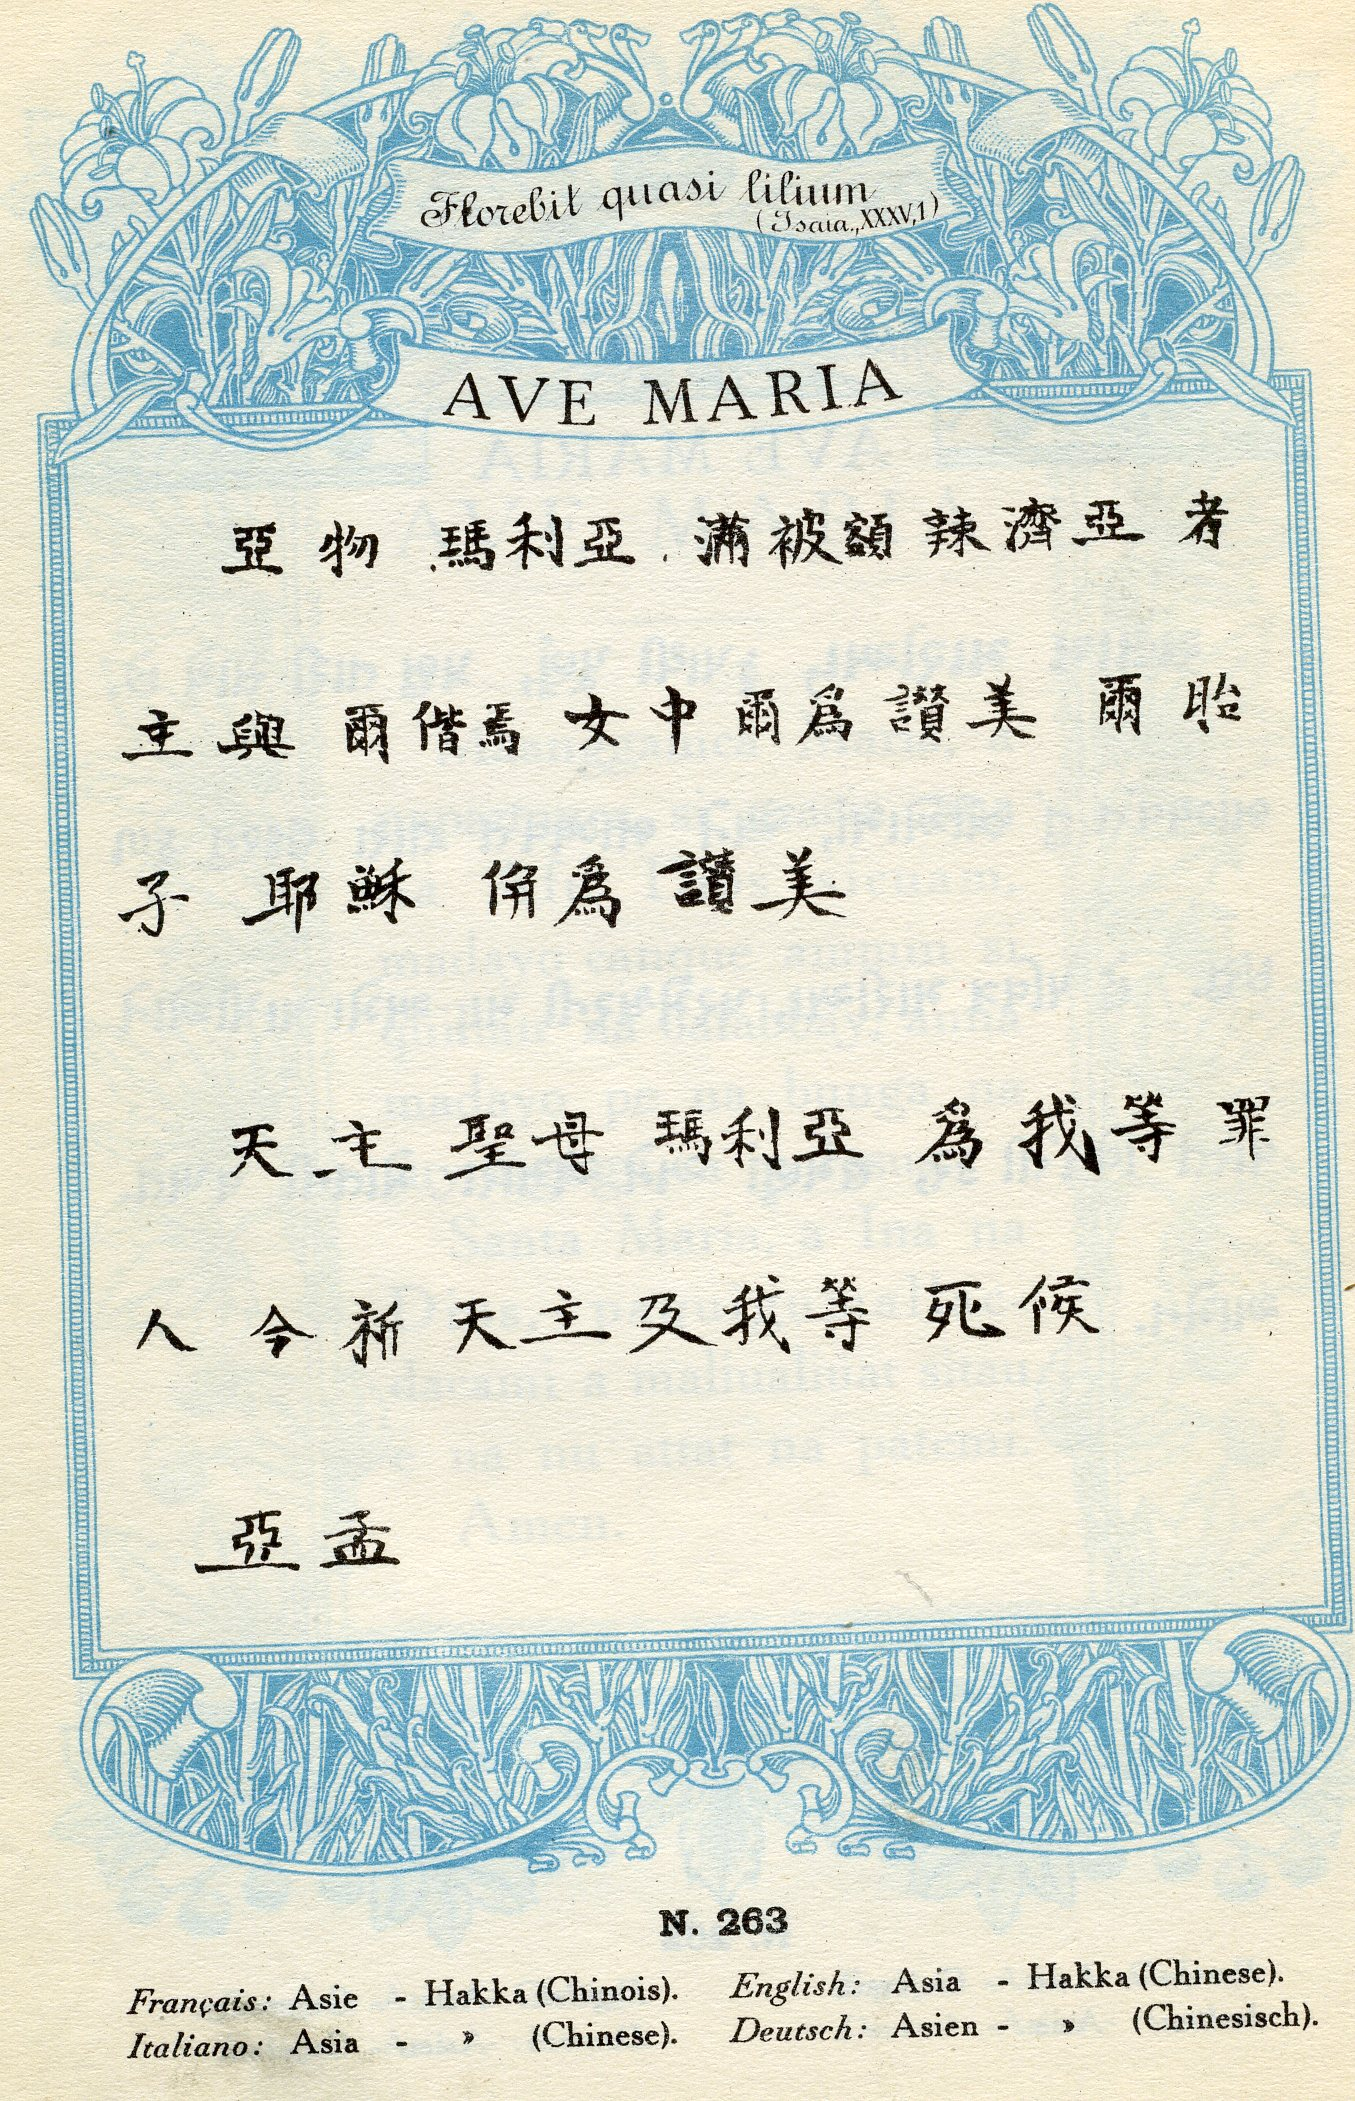 Florebit quasi lilium
(Isaia., XXXV, 1)
AVE MARIA
亞物 瑪利亞 滿被額辣濟亞者
主與爾偕焉 女中爾為讃美 爾胎
子 耶穌 併為讃美
天主聖母瑪利亞 為我等罪
人 今祈天主及我等死候
亞孟
N. 263
Français: Asie - Hakka (Chinois).
Italiano: Asia - » (Chinese).
English: Asia - Hakka (Chinese).
Deutsch: Asien - » (Chinesisch).